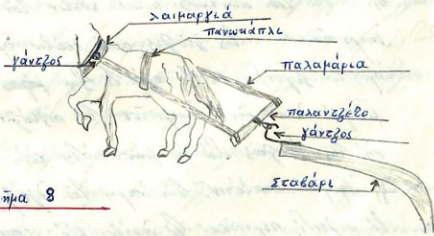 λαιμαργιά
πανωκάπλι
γάντζος
παλαμάρια
παλαντζέτο
γάντζος
σταβάρι
ημα 8